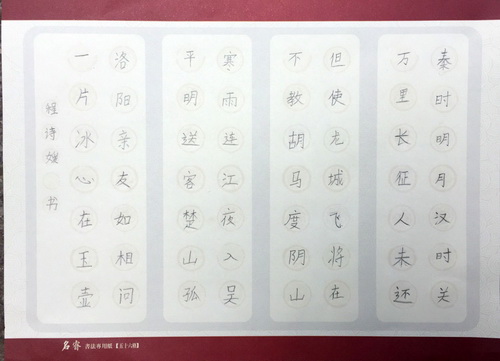 秦时明月汉时关
万里长征人未还
但使龙城飞将在
不教胡马度阴山
寒雨连江夜入吴
平明送客楚山孤
洛阳亲友如相问
一片冰心在玉壶
程诗媛 书
書法專用紙【五十六格】